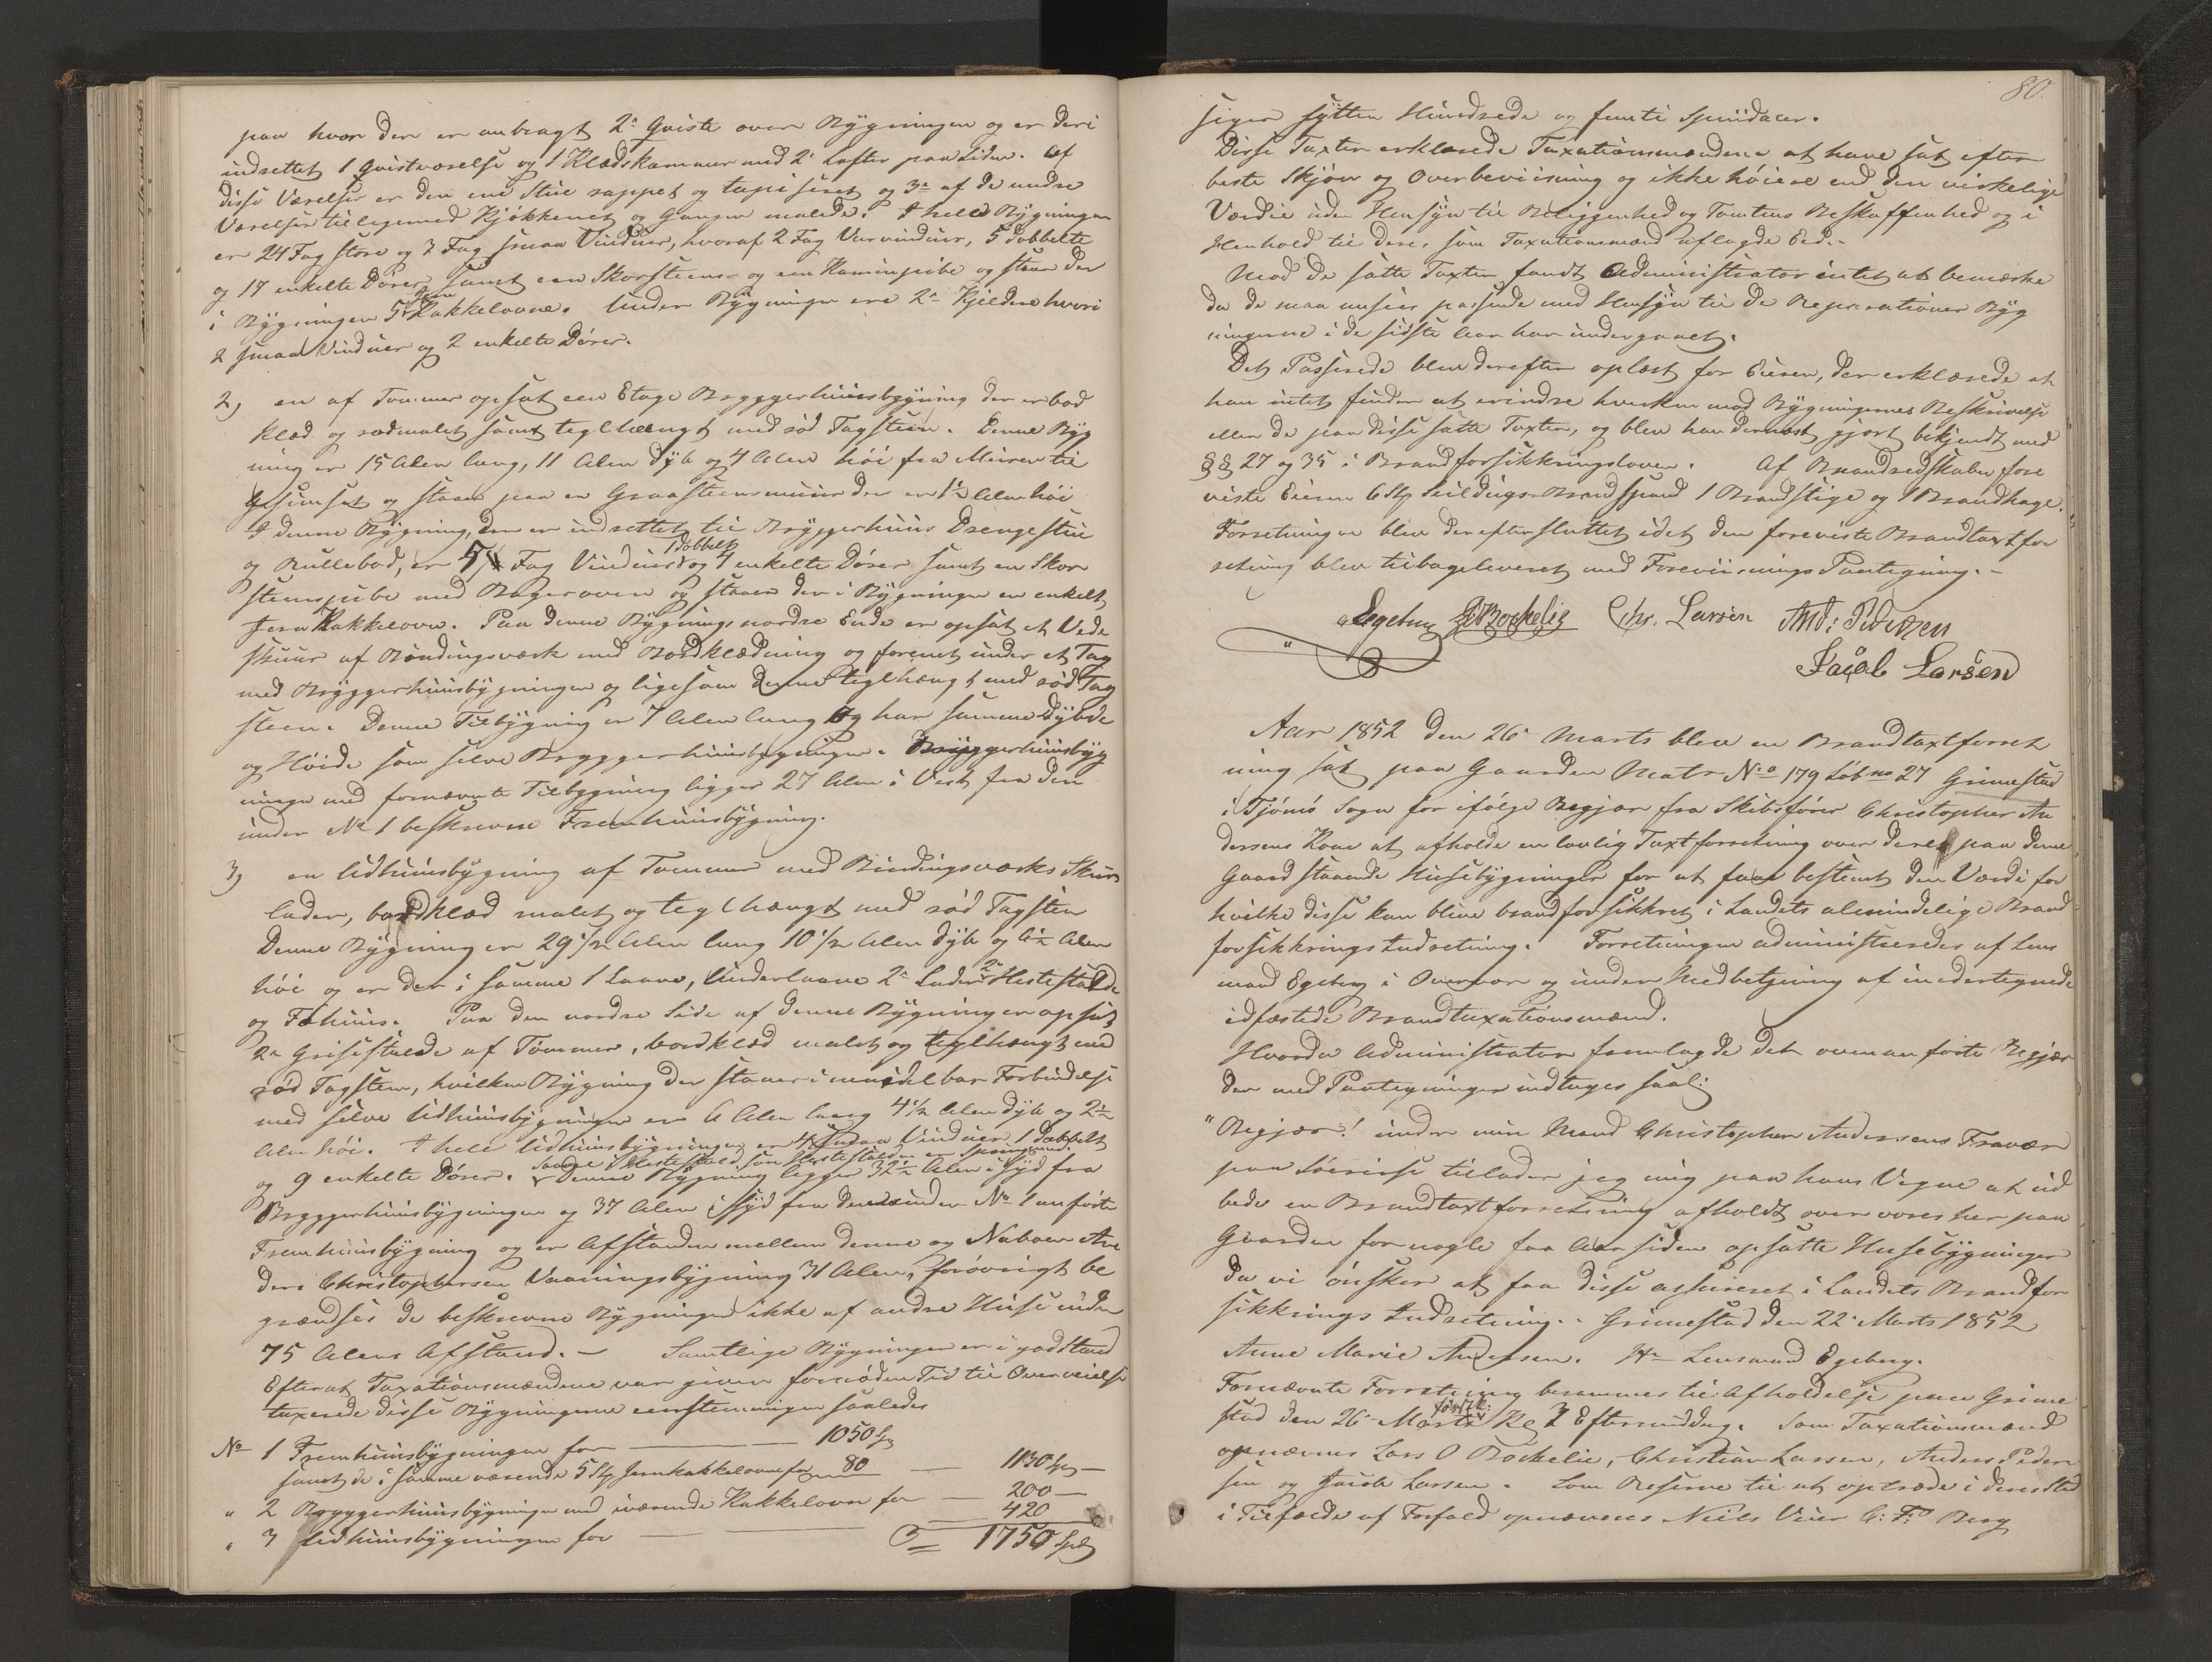 paa hvor der er anbragt 2de Qviste over Bygningen og er deri
indrettet 1 Qvistværelse og 1 Klædskammer med 2de Lofter paa Siden. Af
disse Værelser er den ene Stue rappet og tapiseret og 3de af de andre
Værelser tilligemed Kjøkkenet og Gangen malede. I hele Bygningen
er 24 Fag store og 3 Fag smaa Vinduer, hvoraf 2 Fag Varvinduer, 5 dobbelte
og 17 enkelte Dører samt een Skorsteens- og een Kaminpibe og staar der
i Bygningen 5 Jern Kakkelovne. Under Bygningen ere 2de Kjeldere hvori
2 smaa Vinduer og 2 enkelte Dører.
2, en af Tømmer opsat een Etage Bryggerhuusbygning der er bord
klæd og rødmalet samt teglhængt med rød Tagsteen. Denne Byg
ning er 15 Alen lang, 11 Alen dyb og 4 Alen høi fra Muren til
Gesimset og staar paa en Graasteensmuur der er 1½ Alen høi
I denne Bygning, der er indrettet til Bryggerhuus Drengestue
og Rullebod, er 5 Fag Vinduer 1 dobbelt og 4 enkelte Dører samt en Skor
steenspibe med Bagerovn og staaer der i Bygningen en enkelt
Jern Kakkelovn. Paa denne Bygnings nordre Ende er opsat et Vede
skuur af Bindingsværk med Bordklædning og forenet under et Tag
med Bryggerhuusbygningen og ligesom denne teglhængt med rød Tag
steen. Denne Tilbygning er 7 Alen lang og har samme Dybde
og Høide som selve Bryggerhuusbygningen. Bryggerhuusbyg
ningen med fornævnte Tilbygning ligger 27 Alen i Vest fra den
under No 1 beskrevne Fremhuusbygning.
3, en Udhuusbygning af Tømmer med Bindingsværks Skuur
lader, bordklæd malet og teglhængt med rød Tagsteen
Denne Bygning er 29½ Alen lang 10½ Alen dyb og 6½ Alen
høi og er der i samme 1 Laave, Underlaave 2de Lader 2de Hestestalde
og Fæhuus. Paa den nordre Side af denne Bygning er opsat
2de Grisestalde af Tømmer, bordklæd malet og teglhængt med
rød Tagsteen, hvilken Bygning der staaer i umiddelbar Forbindelse
med selve Udhuusbygningen er 6 Alen lang 4½ Alen dyb og 2½
Alen høi. I hele Udhuusbygningen er 4 smaa Vinduer 1 dobbelt
og 9 enkelte Dører. Denne Bygning ligger 32½ Alen i Syd fra
Bryggerhuusbygningen og 37 Alen i Syd fra den under No 1 anførte
Fremhuusbygning og er Afstanden mellem denne og Naboen An
ders Christophersen Vaaningsbygning 31 Alen, forøvrigt be
grændses de beskrevne Bygninger ikke af andre Huse inden
75 Alens Afstand. – Samtlige Bygninger er i god Stand
Efterat Taxationsmændene var given fornøden Tid til Overveielse
taxerede disse Bygningerne eenstemmigen saaledes
No 1 Fremhuusbygningen for — 1050 Spd
samt de i samme værende 5 Stk. Jernkakkelovne for 80 — 1130 Spd —
" 2 Bryggerhuusbygningen med iværende Kakkelovn for — 200 —
" 3 Udhuusbygningen for — 420
1750 Spd
80
siger sytten Hundrede og femti Speciedaler.
Disse Taxter erklærede Taxationsmændene at have sat efter
beste Skjøn og Overbeviisning og ikke høiere end den virkelige
Værdie uden Hensyn til Beliggenhed og Tomtens Beskaffenhed og i
Henhold til deres som Taxationsmænd aflagde Eed. –
Mod de satte Taxter fandt Administrator intet at bemærke
da de maa ansees passende med Hensyn til de Reparationer Byg
ningerne i de sidste Aar har undergaaet.
Det Passerede blev derefter oplæst for Eieren, der erklærede at
han intet finder at erindre hverken mod Bygningernes Beskrivelse
eller de paa disse satte Taxter, og blev han dernæst gjort bekjendt med
§§ 27 og 35 i Brandforsikkringsloven. Af Brandredskaber fore
viste Eieren 6 Stk Seildugs-Brandspand 1 Brandstige og 1 Brandhage.
Forretningen blev derefter sluttet idet den foreviste Brandtaxtfor
retning blev tilbageleveret med Foreviisnings Paategning. –
Egeberg Chr. Larsen And: Pedersen
Jacob Larsen
Aar 1852 den 26de Marts blev en Brandtaxtforret
ning sat paa Gaarden Matr No 179 Løb no 27 Grimestad
i Tjømø Sogn for ifølge Begjær fra Skibsfører Christopher An
dersens Kone at afholde en lovlig Taxtforretning over deres paa denne
Gaard staaende Husebygninger for at faae bestemt den Værdi for
hvilke disse kan blive brandforsikkret i Landets almindelige Brand
forsikkrings Indretning. Forretningen administreredes af Lens
mand Egeberg i Overvær og under Medbetjening af undertegnede
edfæstede Brandtaxationsmænd.
Hvorda Administrator fremlagde det ommanførte Begjær
der med Paategninger indtages saal:
"Begjær! under min Mand Christopher Andersens Fravær
paa Søereise tillader jeg mig paa hans Vegne at ud
bede en Brandtaxtforretning afholdt over vores her paa
Gaarden for nogle faa Aar siden opsatte Husebygninger
da vi ønsker at faa disse assureret i Landets Brandfor
sikkrings Indretning. Grimestad den 22de Marts 1852
Anne Marie Andersen. Hr Lensmand Egeberg.
Fornævnte Forretning berammes til Afholdelse paa Grime
stad den 26de Marts førstk: Kl 3 Eftermiddag. Som Taxationsmænd
opnævnes Lars O Bøkelie, Christian Larsen, Anders Peder
sen og Jacob Larsen. Som Reserve til at optræde i deres Sted
i Tilfælde af Forfald opnævnes Niels Veier C: F: Berg